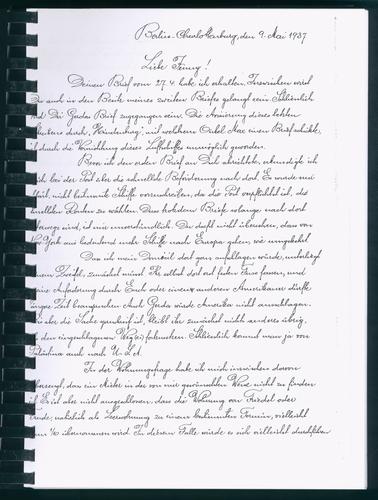 Berlin-Charlottenburg, den 9. Mai 1937
Liebe Fenny!
Deinen Brief vom 27.4. habe ich erhalten. Inzwischen wirst
Du auch in den Besitz meines zweiten Briefes gelangt sein. Schliesslich
wird Dir Gerdas Brief zugegangen sein. Die Avisierung dieses letzten
durch "Hindenburg", mit welchem Onkel Max einen Brief schickte,
ist durch die Vernichtung dieses Luftschiffs unmöglich geworden.
Bevor ich den ersten Brief an Dich abschickte, erkundigte ich
mich bei der Post über die schnellste Beförderung nach dort. Es wurde mir
nicht bestimmte Schiffe vorzuschreiben, da die Post verpflichtet ist, die
schnellsten Routen zu wählen. Dass trotzdem Briefe solange nach dort
unterwegs sind, ist mir unverständlich. Du darfst nicht übersehen, dass von
New York aus bedeutend mehr Schiffe nach Europa gehen, wie umgekehrt.
Dass ich mein Domizil dort gern aufschlagen würde, unterliegt
keinem Zweifel, zunächst müsst Ihr selbst dort erst festen Fuss fassen, und
eine Anforderung durch Euch oder einen anderen Amerikaner dürfte
einige Zeit beanspruchen. Auch Gerda würde Amerika nicht ausschlagen.
aber die Sache gründlich ist, bleibt ihr zunächst nichts anderes übrig,
den eingeschlagenen Weg fortzusetzen. Schliesslich kommt man ja von
Palästina auch nach U.S.A.
In der Wohnungsfrage habe ich mich inzwischen davon
überzeugt, dass ein Mieter in der von mir gewünschten Weise nicht zu finden
ist. Es ist aber nicht ausgeschlossen, dass die Wohnung von Friedel oder
natürlich als Leerwohnung zu einem bestimmten Termin, vielleicht
zum 1/10 übernommen wird. In diesem Falle würde es sich vielleicht durchführen